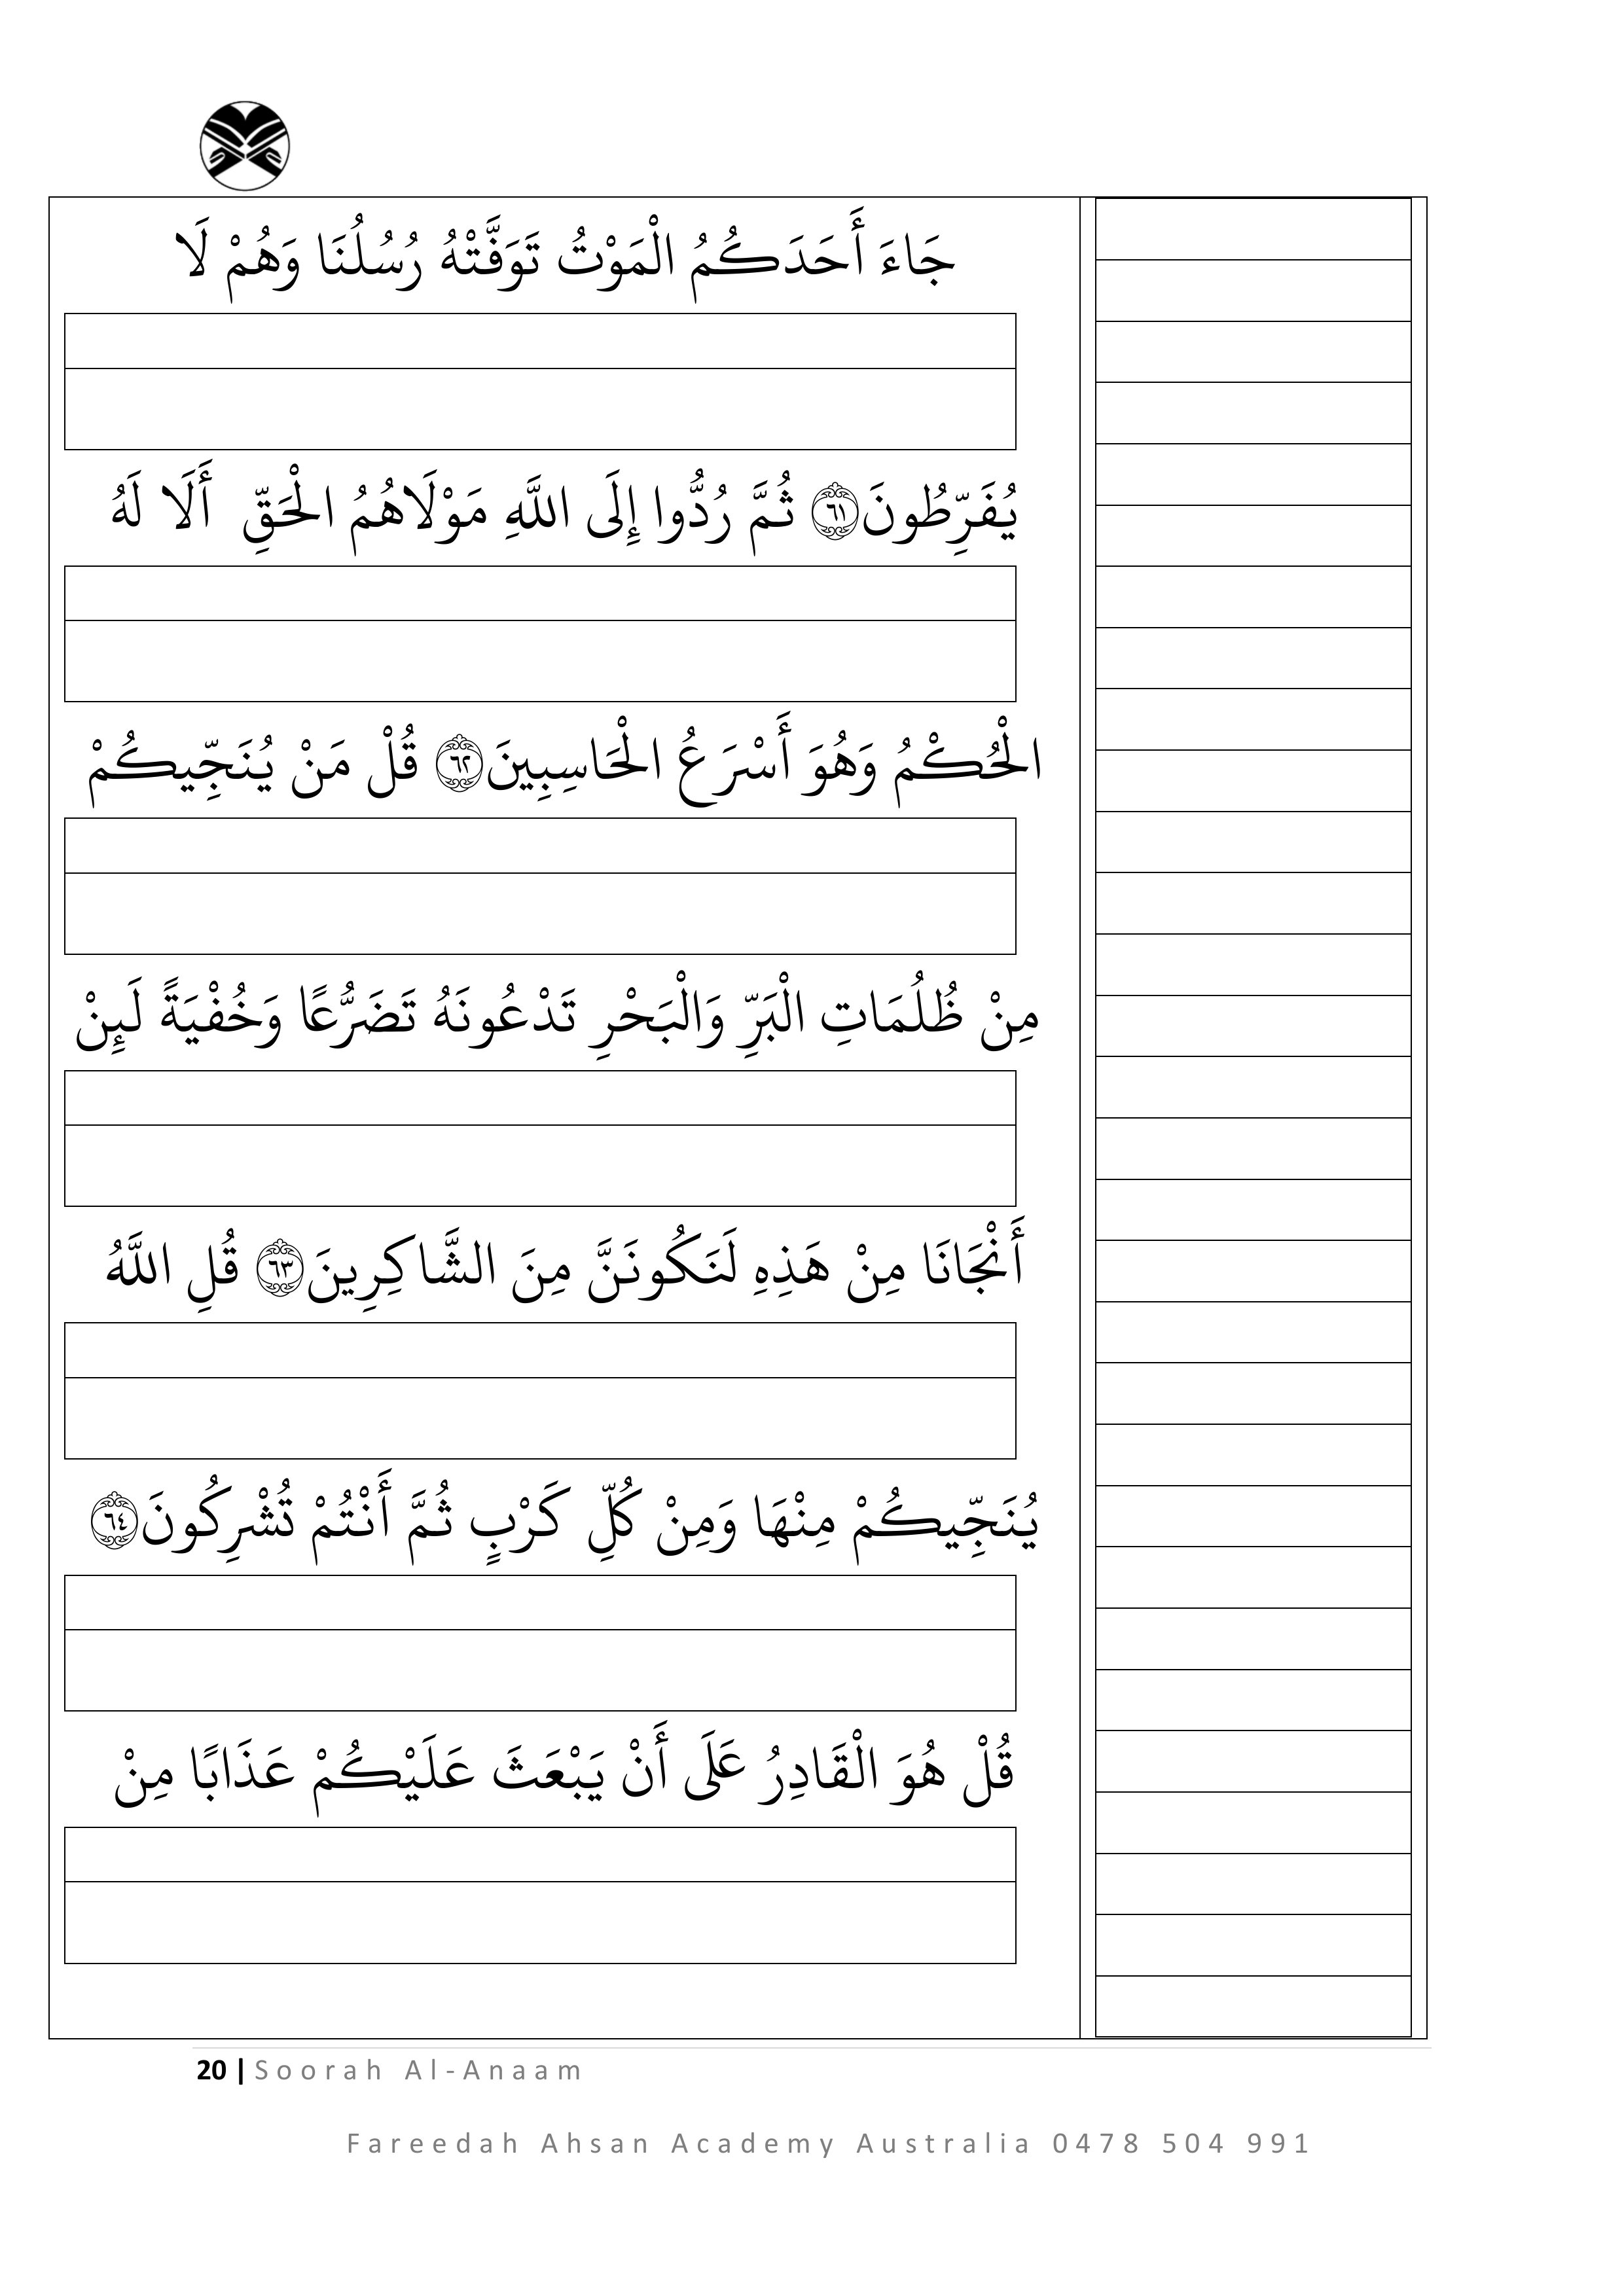 جَاءَ أَحَدَكُمُ الْمَوْتُ تَوَفَّتْهُ رُسُلُنَا وَهُمْ لَا
يُفَرِّطُونَ ﴿٦١﴾ ثُمَّ رُدُّوا إِلَى اللَّهِ مَوْلَاهُمُ الْحَقِّ أَلَا لَهُ
الْحُكْمُ وَهُوَ أَسْرَعُ الْحَاسِبِينَ ﴿٦٢﴾ قُلْ مَنْ يُنَجِّيكُمْ
مِنْ ظُلُمَاتِ الْبَرِّ وَالْبَحْرِ تَدْعُونَهُ تَضَرُّعًا وَخُفْيَةً لَئِنْ
أَنْجَانَا مِنْ هَذِهِ لَنَكُونَنَّ مِنَ الشَّاكِرِينَ ﴿٦٣﴾ قُلِ اللَّهُ
يُنَجِّيكُمْ مِنْهَا وَمِنْ كُلِّ كَرْبٍ ثُمَّ أَنْتُمْ تُشْرِكُونَ ﴿٦٤﴾
قُلْ هُوَ الْقَادِرُ عَلَى أَنْ يَبْعَثَ عَلَيْكُمْ عَذَابًا مِنْ
20 | Soorah Al-Anaam
Fareedah Ahsan Academy Australia 0478 504 991